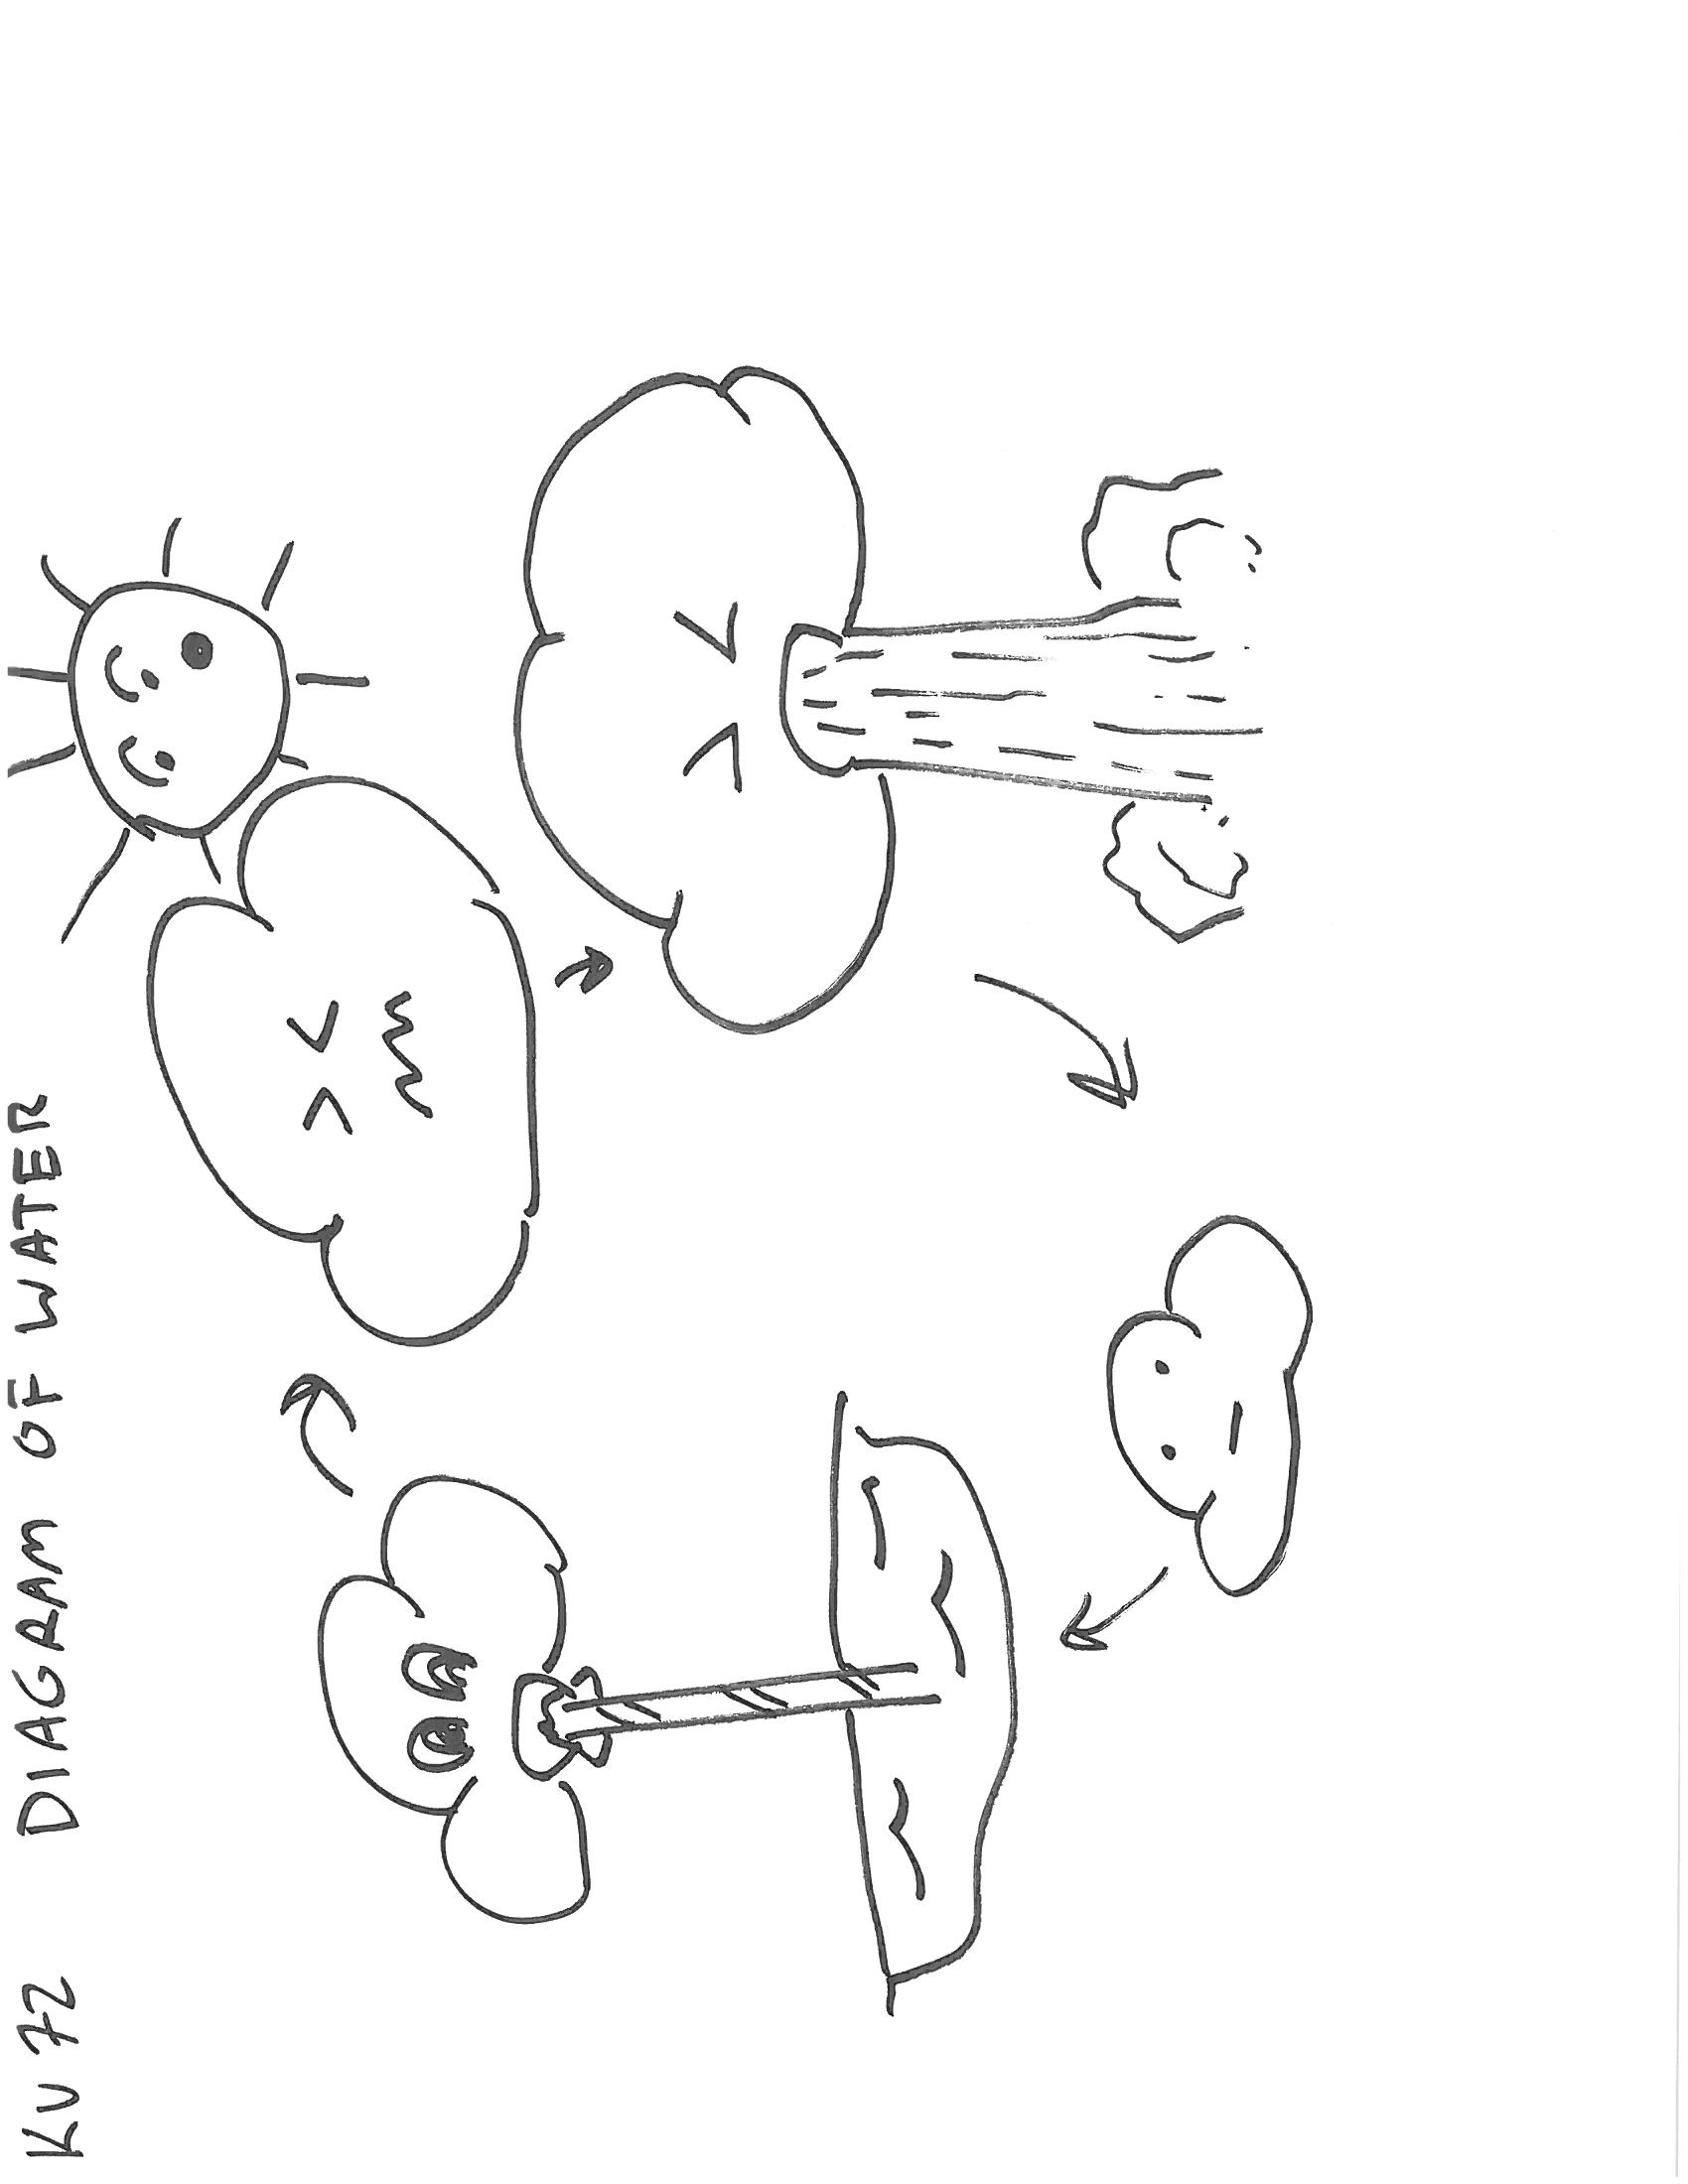 KV 72 DIAGRAM OF WATER